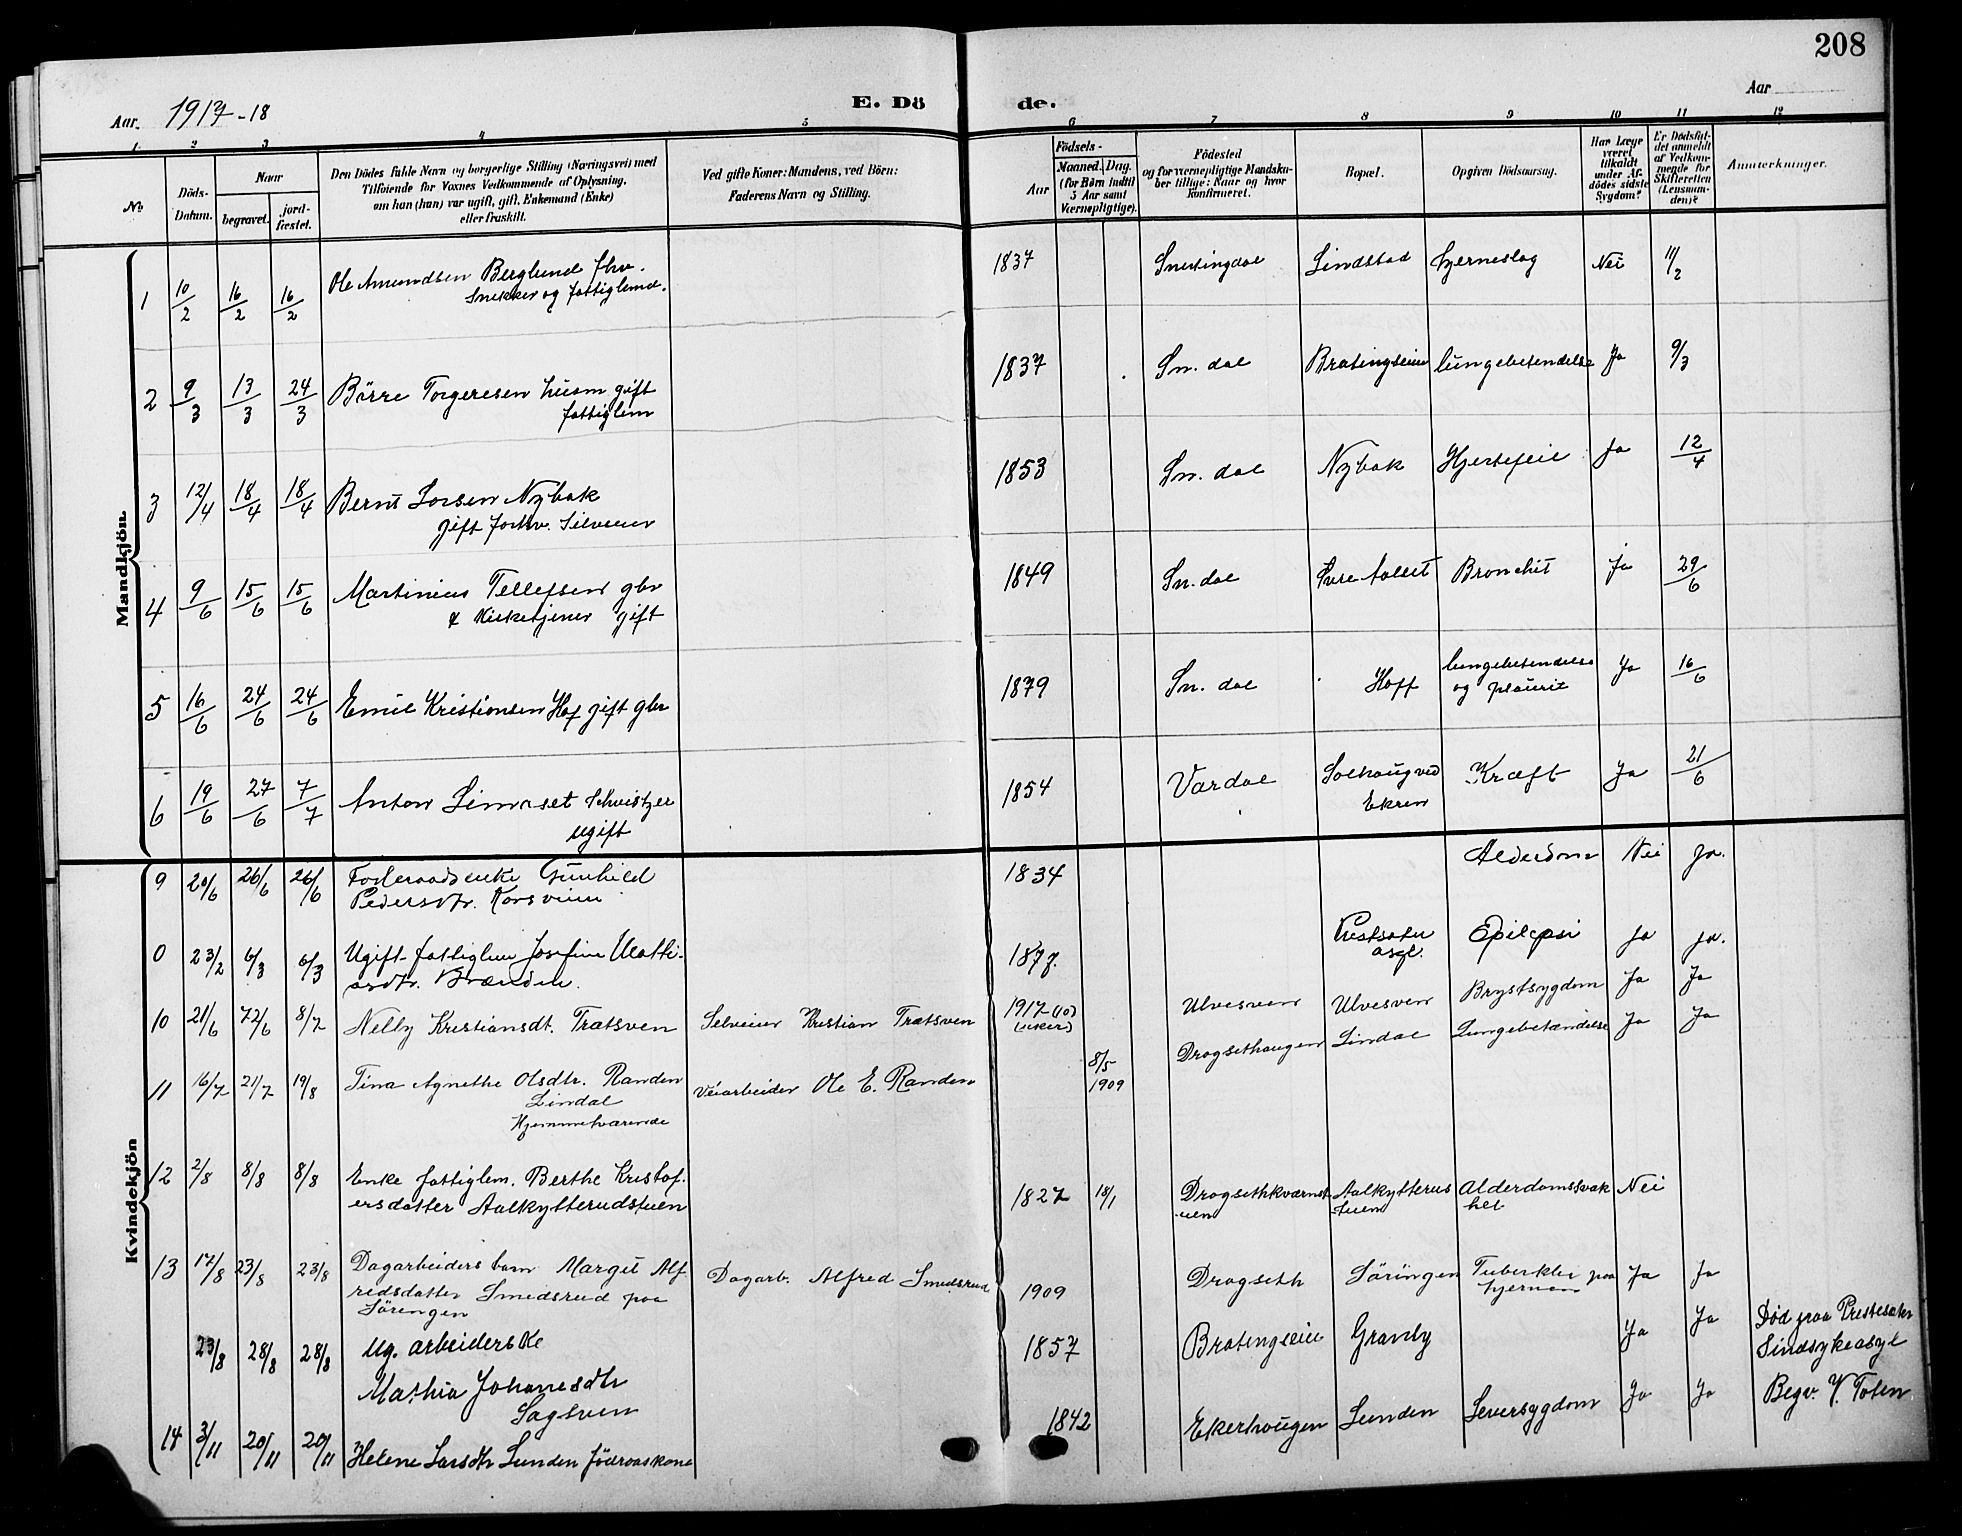 208
Aar 1917-18
E. Dö de.
Aar
1 2 3 4 5 6 7 8 9 10 11 12
No
Döds-Datum.
Naar
begravet.
jord-fæstet.
Den Dödes fulde Navn og borgerlige Stilling (Næringsvei) med
Tilföiende for Voxnes Vedkommende af Oplysning,
om han (hun) var ugift, gift, Enkemand (Enke)
eller fraskilt.
Ved gifte Koner: Mandens, ved Börn:
Faderens Navn og Stilling.
Aar
Födsels-
Maaned. Dag.
(for Börn indtil
5 Aar samt
Værnepligtige).
Födested
og for værnepligtige Mandska-
ber tillige: Naar og hvor
konfirmeret.
Bopæl.
Opgiven Dödsaarsag.
Har Læge
været
tilkaldt
under Af-
dödes sidste
Sygdom?
Er Dödsfal-
det anmeldt
af Vedkom-
mende for
Skifteretten
(Lensman-
den)?
Anmærkninger.
Mandkjön
1 10/2 16/2 16/2 Ole Amundsen Berglund fhv.
Snekker og fattiglemd. 1837 Snertingdal Lindstad Hjerneslag Nei 11/2
2 9/3 13/3 24/3 Börre Torgersen husm gift
fattiglem 1837 Sn. dal Bratingseiie lungebetendelse Ja 9/3
3 12/4 18/4 18/4 Bernt Larsen Nybak
gift forhv. Selveier 1853 Sn. dal Nybak Hjertefeil Ja 12/4
4 9/6 15/6 15/6 Martinius Tellefsen gbr
& Kirketjener gift 1849 Sn. dal Bronchit Ja 29/6
5 16/6 24/6 24/6 Emil Kristiansen Hof gift gbr 1879 Sn. dal Hoff lungebetendelse
og pleurit Ja 16/6
6 19/6 27/6 7/7 Anton Limset Schveitzer
ugift 1854 Vardal Solhaug ved
Ekren Kræft Ja 21/6
Kvindekjön
9 20/6 26/6 26/6 Foderaadsenke Gunhild
Pedersdtr. Korsveien 1834 Alderdom Nei Ja.
0 23/2 6/3 6/3 Ugift fattiglem Josefine Matti-
asdtr. Brænden. 1877. Prestsæter
asyl. Epilepsi Ja ja.
10 21/6 72/6 8/7 Nelly Kristiansdt. Trætsven Selveier Kristian Trætsven 1917 (10)
(uker) Ulvesven Ulvesven Brystsygdom Ja Ja
11 16/7 21/7 19/8 Tina Agnethe Olsdtr. Randen
Lindal
Hjemmeværende Veiarbeider Ole E. Randen 8/5
1909 Dragsethaugen Lindal Lungebetændelse Ja Ja
12 2/8 8/8 8/8 Enke fattiglem. Berthe Kristof.
ersdatter Aalkytterudstuen 1827 18/1 Dragsethkværnst
uen Aalkytterus
tuen Alderdomssvak
het Nei
13 17/8 23/8 23/8 Dagarbeiders barn Margit Alf
redsdatter Smedsrud paa
Säringen Dagarb. Alfred Smedsrud 1909 Dragseth Säringen Tuberkler paa
hjernen Ja Ja
23/8 28/8 28/8 Ug. arbeiderske
Mathia Johanesdtr
Sagsven 1857 Bratingseiie Granly Ja Ja Död paa Prestesæter
Sindsykeasyl
14 3/11 20/11 20/11 Helene Larsdtr Lunden föderaaskone 1842 Ekerhaugen Lunden Leversygdom Ja Ja Begr. V. Toten